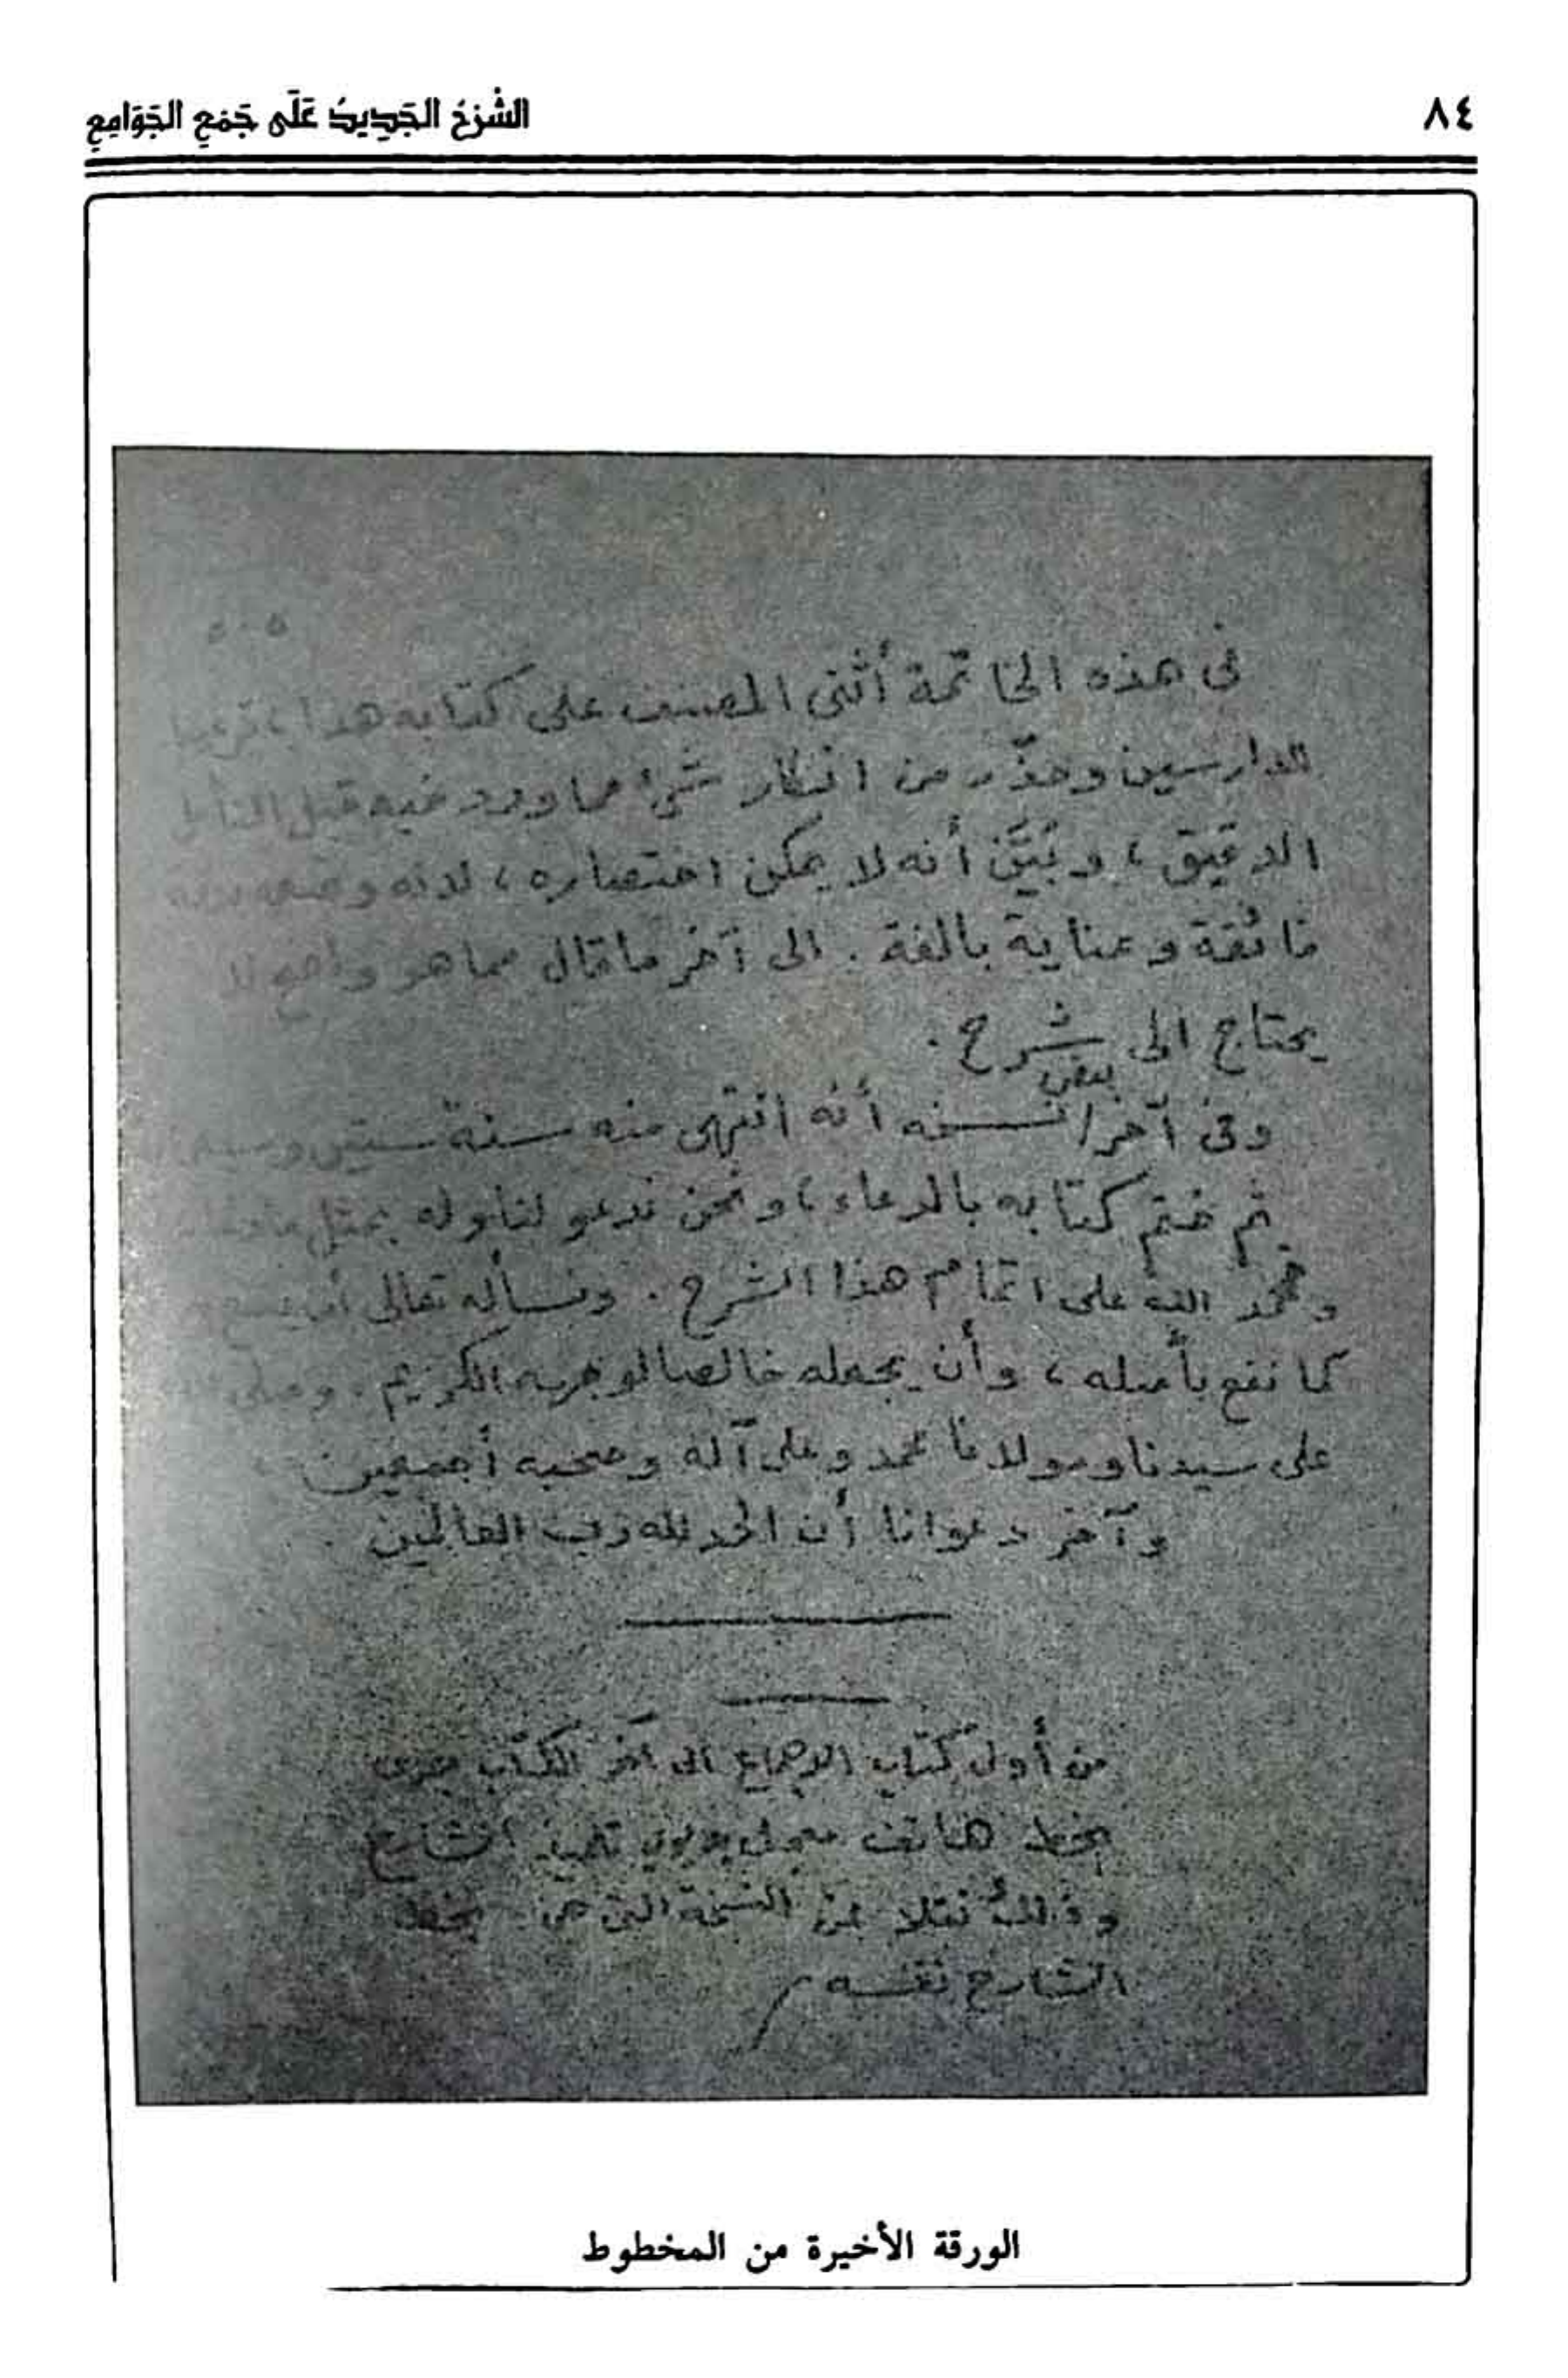 ٨٤
الشَّرْحُ الجَدِيدُ عَلَى جَمْعِ الجَوَامِعِ
٥٠٥
فى هذه الخاتمة أثنى المصنف على كتابه هذا، ترغيبا
للدارسين وحذّر من انكار شىء مما ورد فيه قبل التأمل
الدقيق، وبَيَّن أنه لا يمكن اختصاره، لدنه وضعه بدقة
فائقة وعناية بالغة. الى آخر ما قال مما هو واضح لا
يحتاج الى شرح.
بعض
وفى آخر النسخه أنه انتهى منه سنة ستين وسبع
ثم ختم كتابه بالدعاء، ونحن ندعو لنا وله بمثل
ونحمد الله على اتمام هذا الشرح. ونسأله تعالى أن ينفع
كما نفع بأصله، وأن يجعله خالصا لوجهه الكريم. وصلى
على سيدنا ومولانا محمد وعلى آله وصحبه أجمعين
وآخر دعوانا أن الحمد لله رب العالمين
من أول كتاب الاجماع الى آخر الكتاب جرى
بخط تلميذ الشارح
وذلك نقلا عن النسخة التى هى بخط
الشارح نفسه
الورقة الأخيرة من المخطوط